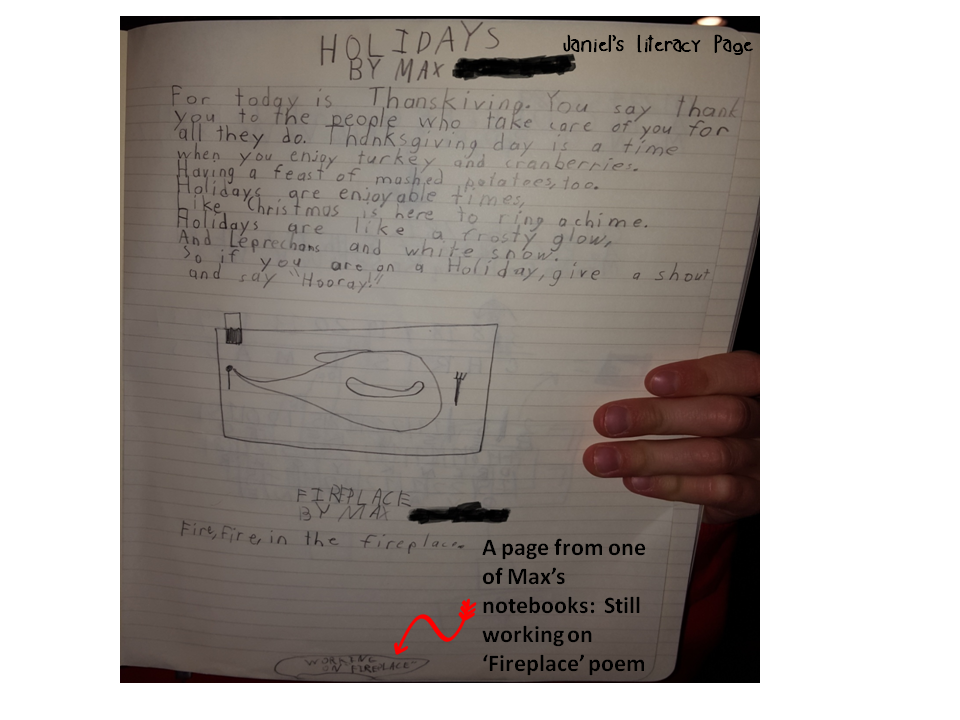 HOLIDAYS
Janiel's Literacy Page
BY MAX
For today is Thanskiving. You say thank
you to the people who take care of you for
all they do. Thanksgiving day is a time
when you enjoy turkey and cranberries.
Having a feast of mashed potatoes, too.
Holidays are enjoyable times,
Like Christmas is here to ring a chime.
Holidays are like a frosty glow,
And Leprechans and white snow.
So if you are on a Holiday, give a shout
and say "Hooray!"
FIREPLACE
BY MAX
Fire, Fire, in the fireplace.
A page from one
of Max's
notebooks: Still
working on
'Fireplace' poem
WORKING
ON "FIREPLACE"